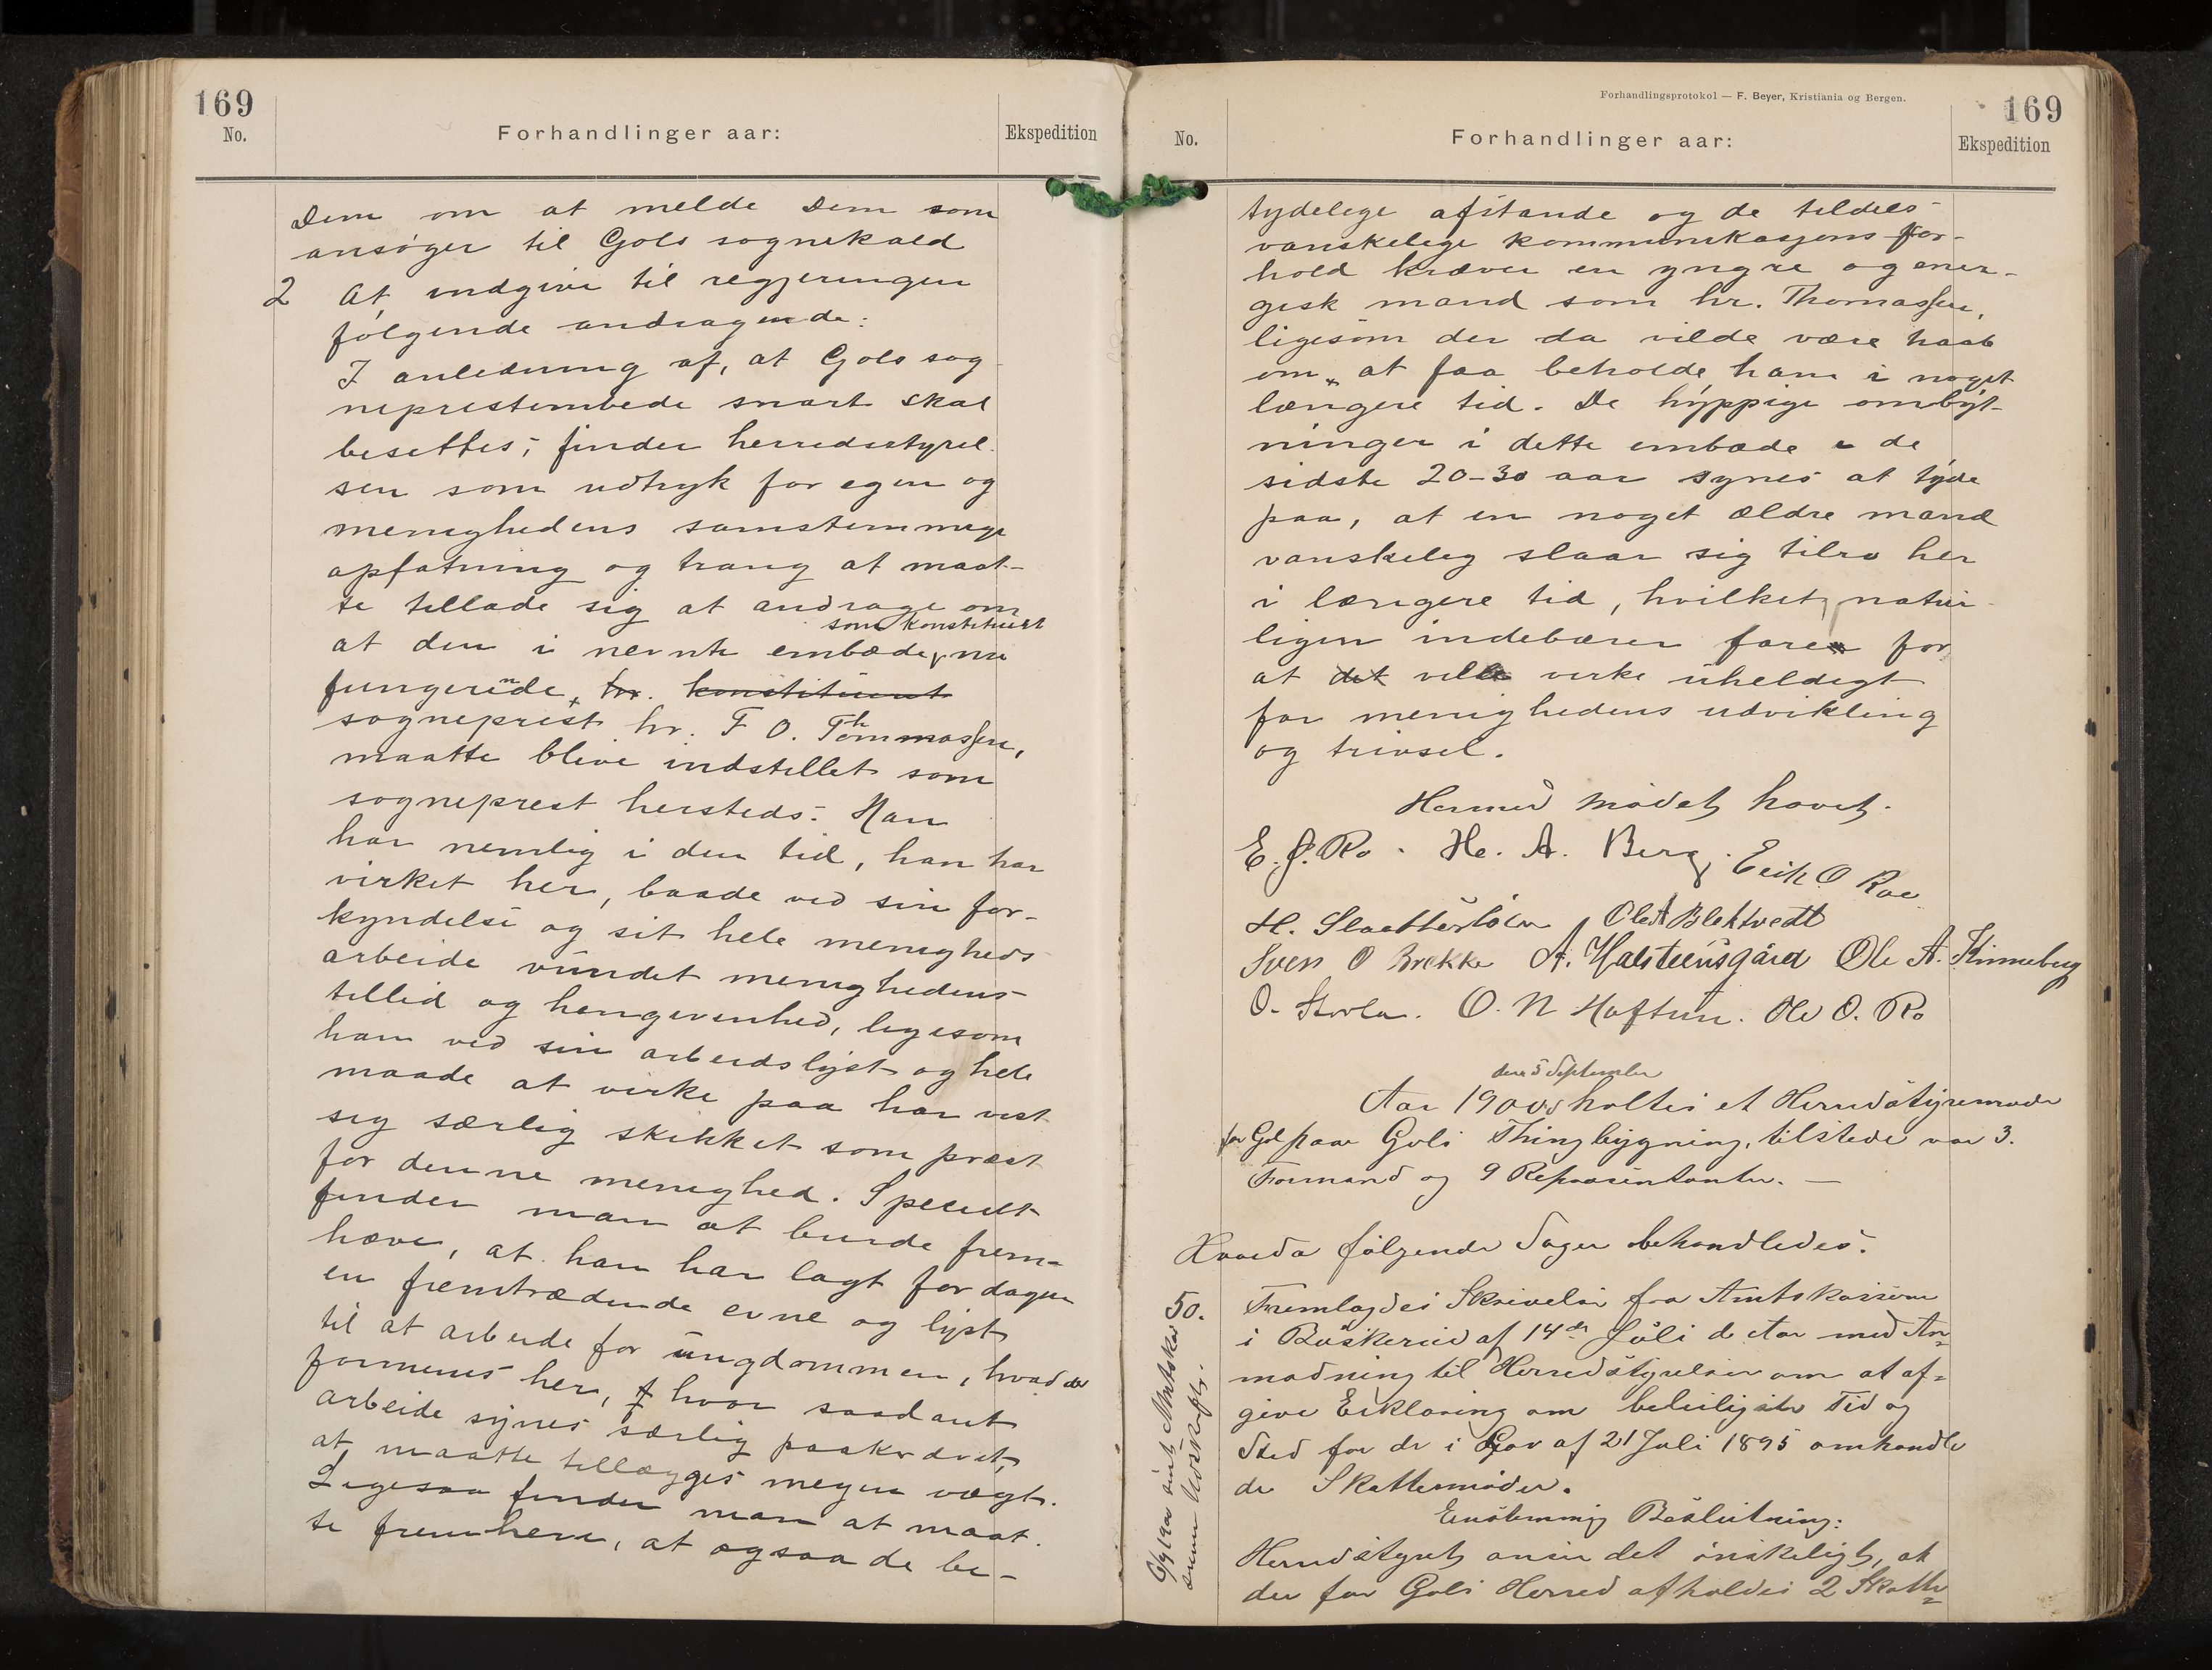 169
No.
Forhandlinger aar:
Ekspedition
Dem om at melde Dem som
ansøger til Gols sognekald
2 At indgive til regjeringen
følgende andragende:
I anledning af, at Gols sog
neprestembede snart skal
besettes, finder herredsstyrel
sen som udtryk for egen og
menighedens samstemmige
opfatning og trang at maat-
te tillade sig at andrage om
som konstitueret
at den i nevnte embæde nu
fungerende, hr. konstitueret
sogneprest hr. F O. Thommassen,
maatte blive indstillet som
sogneprest hersteds. Han
har nemlig i den tid, han har
virket her, baade ved sin for-
kyndelse og sit hele menigheds
arbeide vundet menighedens
tillid og hengivenhed, ligesom
han ved sin arbeidslyst og hele
maade at virke paa har vist
sig særlig skikket som præst
for denne menighed. Specielt
finder man at burde frem-
hæve, at han har lagt for dagen
en fremtrædende evne og lyst
til at arbeide for ungdommen, hvad der
formenes her, hvor saadant
arbeide synes særlig paakrævet,
at maatte tillægges megen vægt.
Ligesaa finder man at maat-
te fremheve, at ogsaa de be-
Forhandlingsprotokol — F. Beyer, Kristiania og Bergen.
169
No.
Forhandlinger aar:
Ekspedition
tydelege afstande og de tildels
vanskelege kommunikasjons for-
hold kræver en yngre og ener-
gisk mand som hr. Thomassen,
ligesom der da vilde være haab
om at faa beholde ham i noget
længere tid. De hyppige ombyt-
ninger i dette embæde i de
sidste 20-30 aar synes at tyde
paa, at en noget ældre mand
vanskeleg slaar sig tilro her
i længere tid, hvilket natur-
ligen indebærer faren for
at det ville virke uheldigt
for menighedens udvikling
og trivsel.
Hermed mødet hævet.
E. J. Ro. He. A. Berg. Erik O Roe
H. Slaatterløkken Ole A Blektvedt
Sven O Brekke A. Halsteensgård Ole A. Kinneberg
O. Storla. O. N Haftun. Ole O. Ro
den 5 September
Aar 1900 holtes et Herredstyremøde
for Gol paa Gols Thingbygning, tilstede var
Formand og 9 Repræsentanter. —
Hvorda følgende Sager behandledes.
50. Fremlagdes Skrivelse fra Amtskassereren
i Buskerud af 14de Juli d. Aar med An-
modning til Herredstyrelsen om at af-
give Erklæring om beleiligste Tid og
Sted for de i Lov af 21 Juli 1895 omhandle
de Skattemøder.
Enstemmig Beslutning:
Herredstyret anser det ønskeligt, at
der for Gols Herred afholdes 2 Skatte-